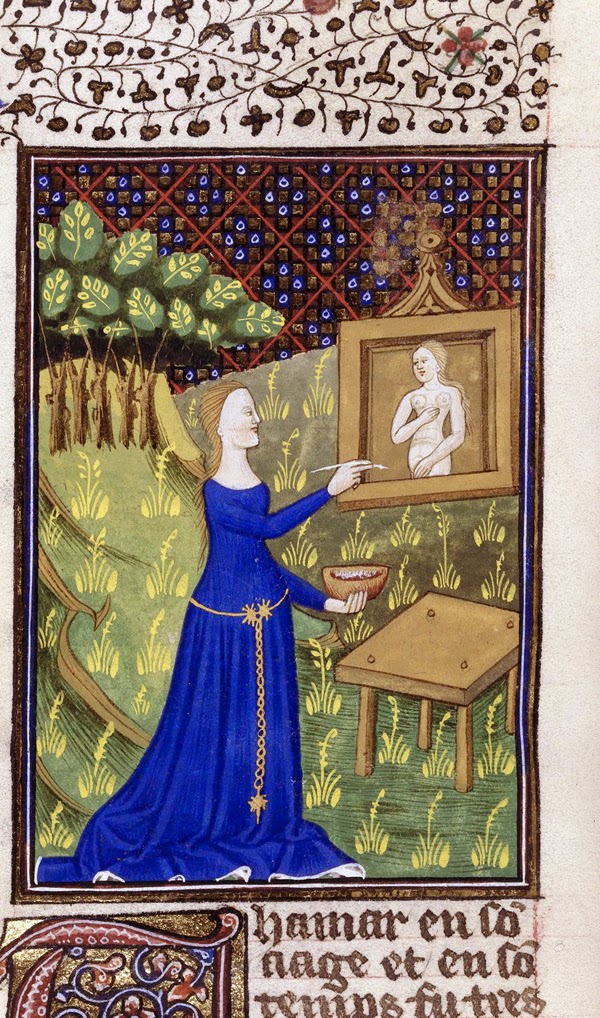 Thamar en sō
aage et en sō
temps fu tres